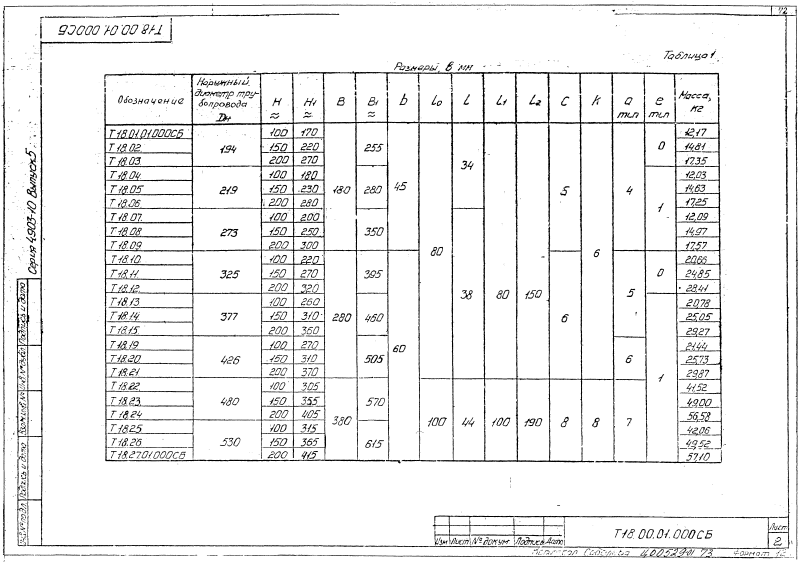 72
Т18.00.01.000СБ
Таблица 1
Размеры, в мм
Обозначение | Наружный диаметр трубопровода Dн | H ≈ | H1 ≈ | B | B1 ≈ | b | L0 | L | L1 | L2 | C | K | a тип | e тип | Масса, кг
Т18.01.01.000СБ | 194 | 100 | 170 | 180 | 255 | 45 | 80 | 34 | 80 | 150 | 5 | 6 | 4 | 0 | 12,17
Т18.02 | 150 | 220 | 14,81
Т18.03 | 200 | 270 | 17,35
Т18.04 | 219 | 100 | 180 | 280 | 1 | 12,03
Т18.05 | 150 | 230 | 14,63
Т18.06 | 200 | 280 | 17,25
Т18.07 | 273 | 100 | 200 | 350 | 38 | 12,09
Т18.08 | 150 | 250 | 14,97
Т18.09 | 200 | 300 | 17,57
Т18.10 | 325 | 100 | 220 | 280 | 395 | 60 | 6 | 5 | 0 | 20,66
Т18.11 | 150 | 270 | 24,85
Т18.12 | 200 | 320 | 28,41
Т18.13 | 377 | 100 | 260 | 460 | 1 | 20,78
Т18.14 | 150 | 310 | 25,05
Т18.15 | 200 | 360 | 29,27
Т18.19 | 426 | 100 | 270 | 505 | 6 | 21,44
Т18.20 | 150 | 310 | 25,73
Т18.21 | 200 | 370 | 29,87
Т18.22 | 480 | 100 | 305 | 380 | 570 | 100 | 44 | 100 | 190 | 8 | 8 | 7 | 41,52
Т18.23 | 150 | 355 | 49,00
Т18.24 | 200 | 405 | 56,58
Т18.25 | 530 | 100 | 315 | 615 | 42,06
Т18.26 | 150 | 365 | 49,52
Т18.27.01.000СБ | 200 | 415 | 57,10
Серия 4.903-10 Выпуск 5
Подпись и дата
Подпись и дата
Изм Лист № докум Подпись Дата
Т18.00.01.000СБ
Лист
2
Формат 12